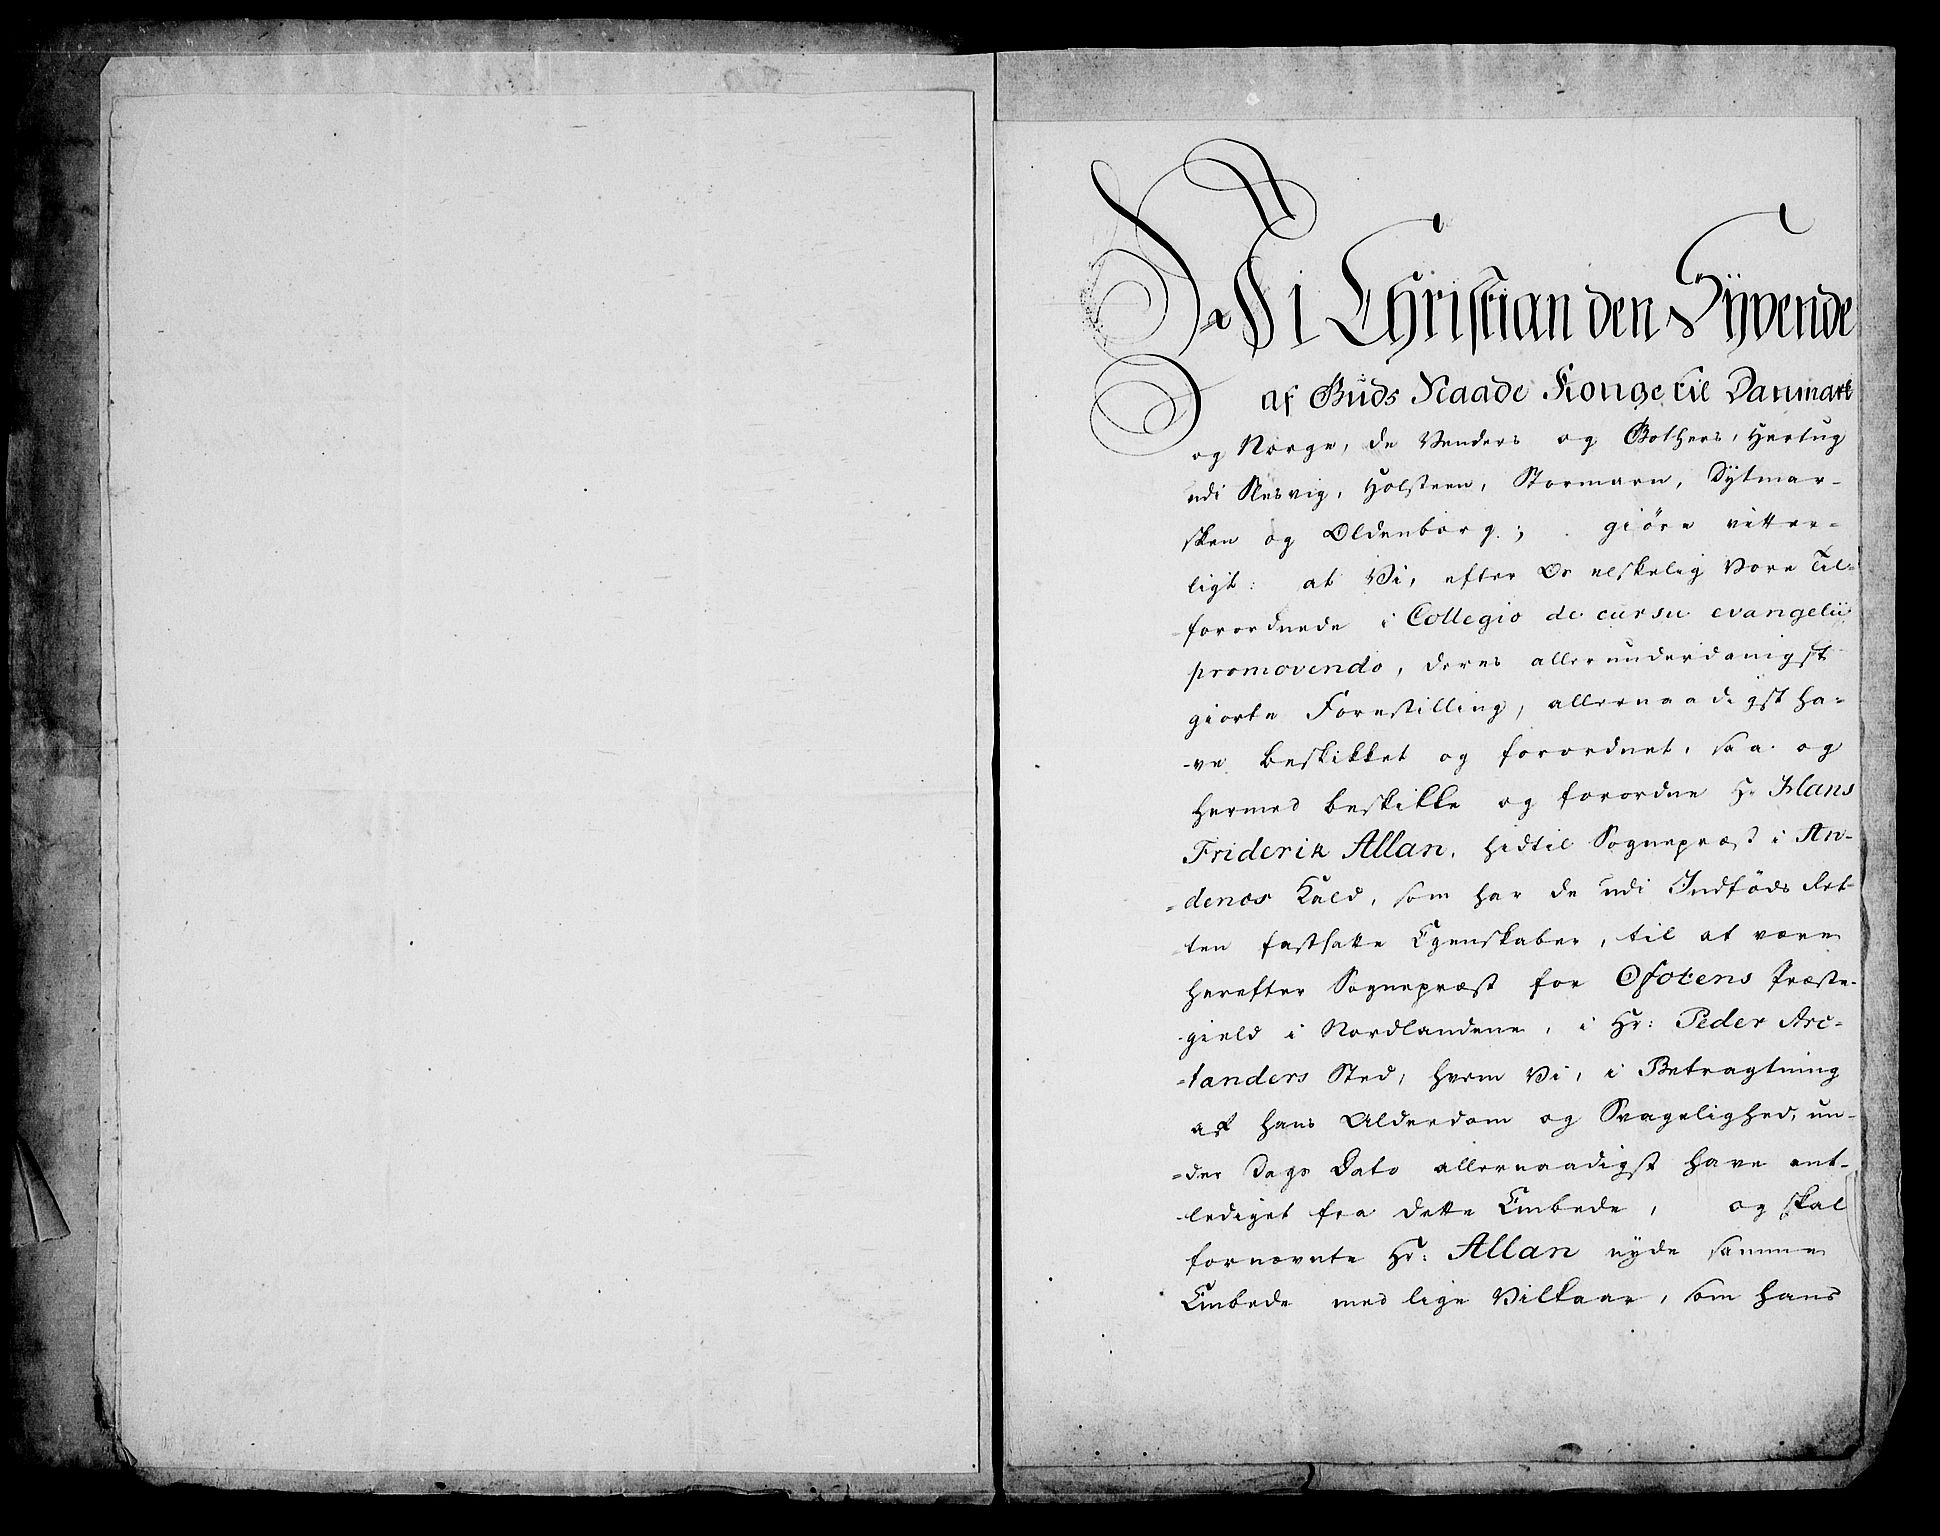 Vi Christian den Syvende
af Guds Naade Konge til Danmark
og Norge, de Venders og Gothers, Hertug
udi Slesvig, Holsteen, Stormarn, Dytmar-
sken og Oldenborg; giøre vitter-
ligt: at Vi, efter Os elskelig Vore Til-
forordnede i Collegio de cursu evangelii
promovendo, deres allerunderdanigst
giorte Forestilling, allernaadigst ha-
ve beskikket og forordnet, saa og
hermed beskikke og forordne Hr Hans
Friderik Allan, hidtil Sognepræst i An-
denæs Kald, som har de udi Indføds Ret-
ten fastsatte Egenskaber, til at være
herefter Sognepræst for Ofotens Præste-
gield i Nordlandene, i Hr: Peder Arc-
tanders Sted, hvem Vi, i Betragtning
af hans Alderdom og Svagelighed, un-
der Dags Dato allernaadigst have ent-
lediget fra dette Embede, og skal
fornævnte Hr: Allan nyde samme
Embede med lige Vilkaar, som hans